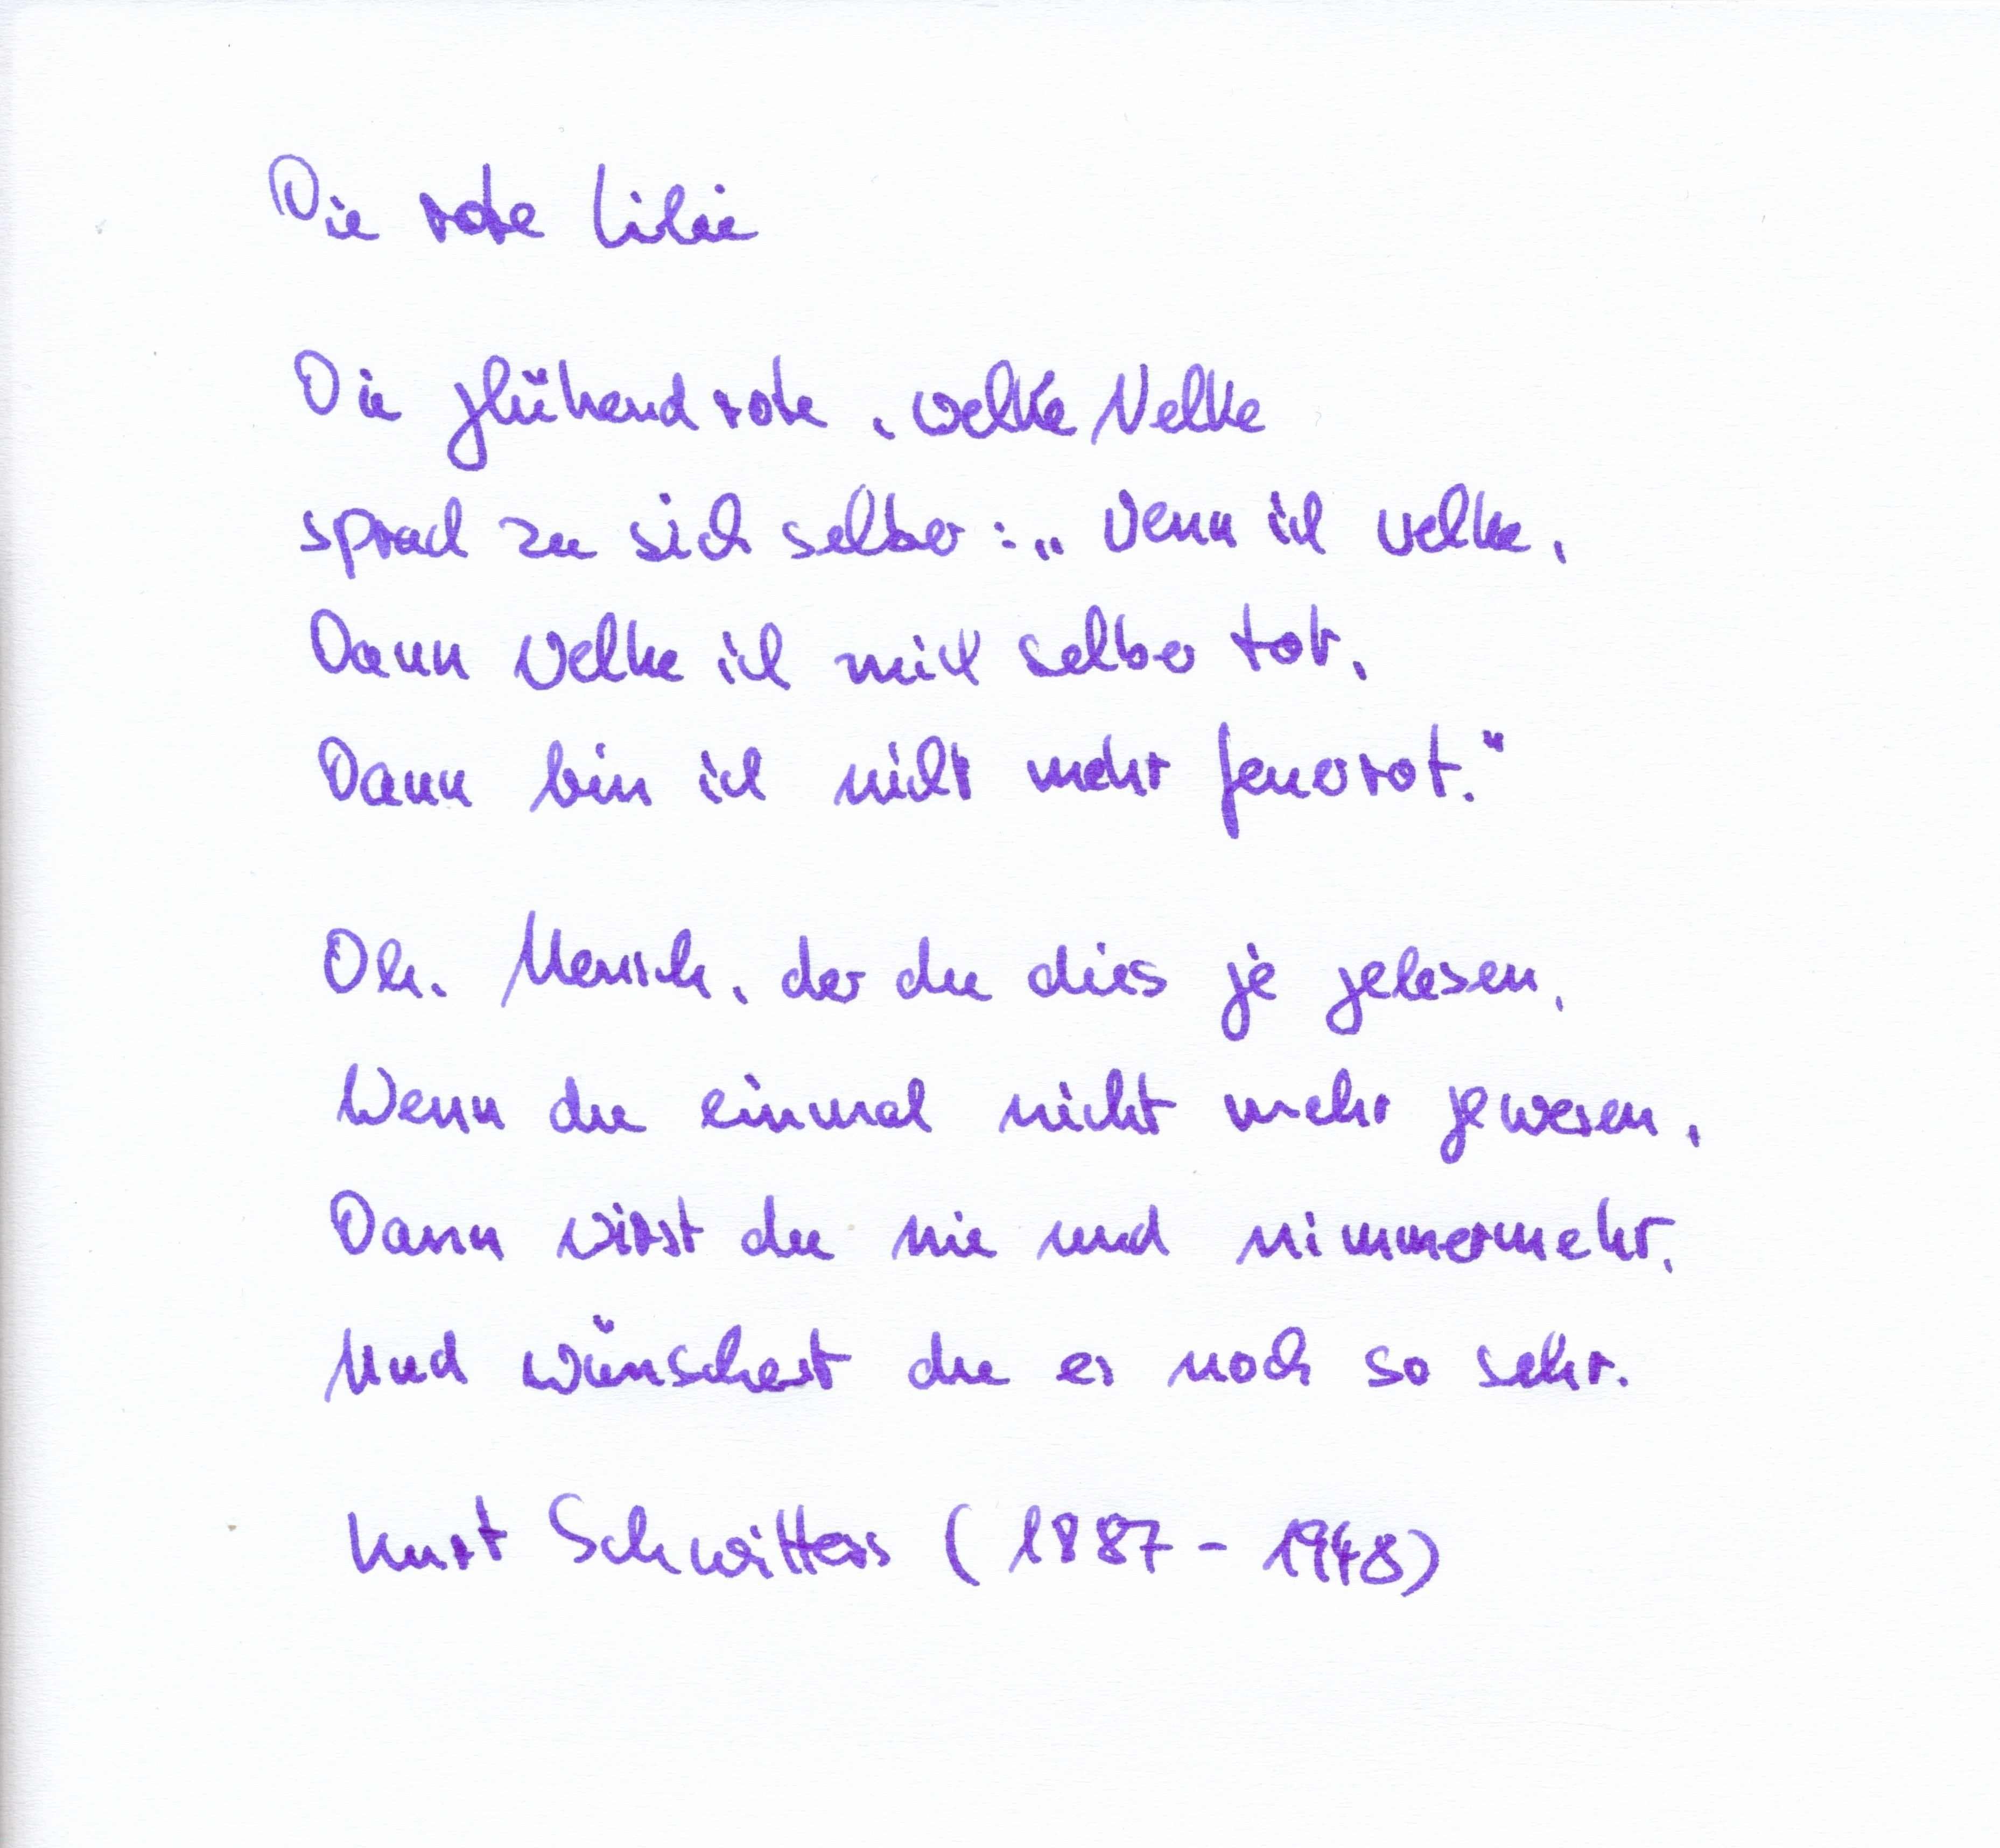 Die rote Lilie
Die glühendrote, welke Nelke
sprach zu sich selber: „Wenn ich welke,
Dann welke ich mich selber tot,
Dann bin ich nicht mehr feuerrot."
Oh, Mensch, der du dies je gelesen,
Wenn du einmal nicht mehr gewesen,
Dann wirst du nie und nimmermehr,
Und wünschest du es noch so sehr.
Kurt Schwitters (1887 - 1948)